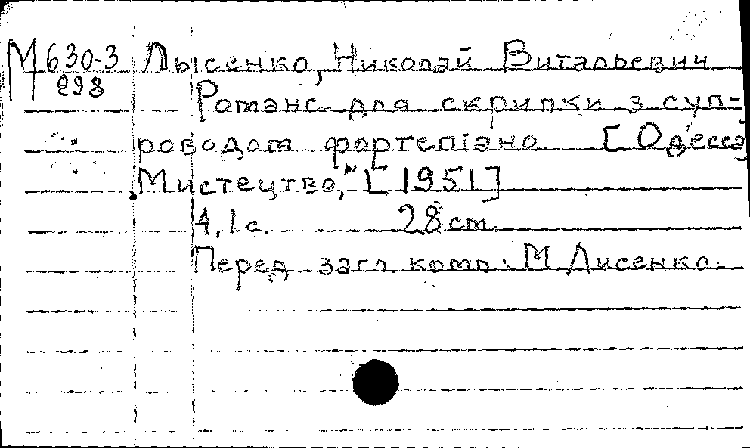 М630-3 Лысенко, Николай Витальевич
898
Романс для скрипки з суп-
роводом фортепіано [Одесса
Мистецтво," [1951]
4, 1 с. 28 cm.
Перед загл. комп.: М. Лисенко.